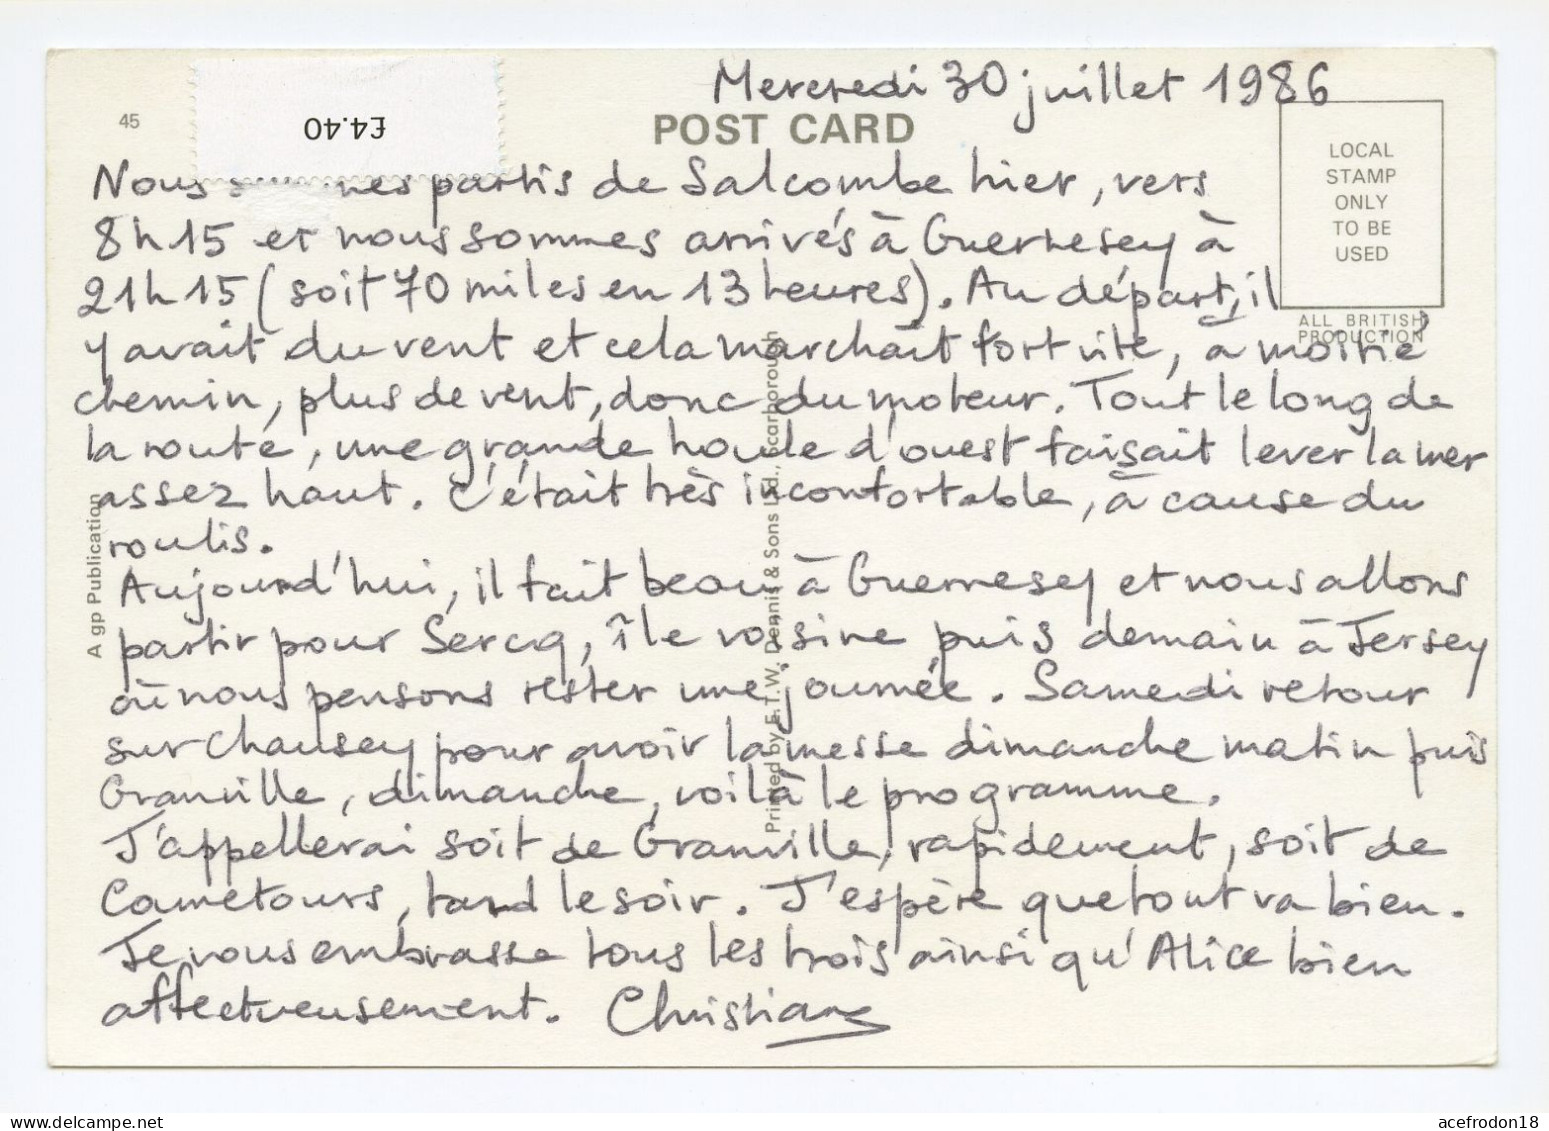 Mercredi 30 juillet 1986
45
£4.40
POST CARD
LOCAL
STAMP
ONLY
TO BE
USED
ALL BRITISH
PRODUCTION
Nous sommes partis de Salcombe hier, vers
8h15 et nous sommes arrivés à Guernesey à
21h15 (soit 70 miles en 13 heures). Au départ, il
y avait du vent et cela marchait fort vite, à moitié
chemin, plus de vent, donc du moteur. Tout le long de
la route, une grande houle d'ouest faisait lever la mer
assez haut. C'était très inconfortable, à cause du
roulis.
Aujourd'hui, il fait beau à Guernesey et nous allons
partir pour Sercq, île voisine, puis demain à Jersey
où nous pensons rester une journée. Samedi retour
sur Chausey pour avoir la messe dimanche matin puis
Granville, dimanche, voilà le programme.
J'appellerai soit de Granville, rapidement, soit de
Cametours, tard le soir. J'espère que tout va bien.
Je vous embrasse tous les trois ainsi qu'Alice bien
affectueusement. Christiane
A gp Publication
Printed by E.T.W. Dennis & Sons Ltd., Scarborough
www.delcampe.net
acefrodon18